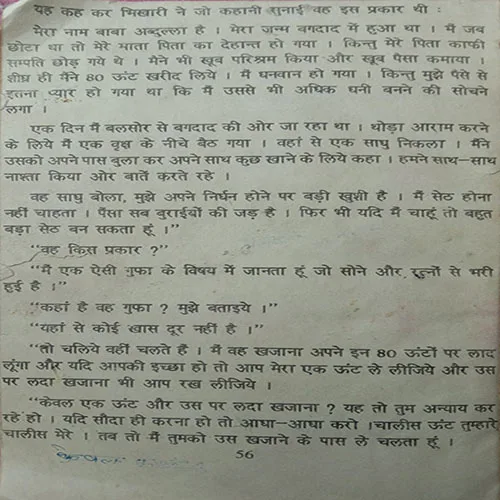 यह कह कर भिखारी ने जो कहानी सुनाई वह इस प्रकार थी :
मेरा नाम बाबा अब्दुल्ला है । मेरा जन्म बगदाद में हुआ था । मैं जब
छोटा था तो मेरे माता पिता का देहान्त हो गया । किन्तु मेरे पिता काफी
सम्पति छोड़ गये थे । मैंने भी खूब परिश्रम किया और खूब पैसा कमाया ।
शीघ्र ही मैंने 80 ऊंट खरीद लिये । मैं धनवान हो गया । किन्तु मुझे पैसे से
इतना प्यार हो गया था कि मैं उससे भी अधिक धनी बनने की सोचने
लगा ।
एक दिन मैं बलसोर से बगदाद की ओर जा रहा था । थोड़ा आराम करने
के लिये मैं एक वृक्ष के नीचे बैठ गया । वहां से एक साधु निकला । मैंने
उसको अपने पास बुला कर अपने साथ कुछ खाने के लिये कहा । हमने साथ-साथ
नाश्ता किया ओर बातें करते रहे ।
वह साधु बोला, मुझे अपने निर्धन होने पर बड़ी खुशी है । मैं सेठ होना
नहीं चाहता । पैसा सब बुराईयों की जड़ है । फिर भी यदि मैं चाहूं तो बहुत
बड़ा सेठ बन सकता हूं ।”
“वह किस प्रकार ?”
“मैं एक ऐसी गुफा के विषय में जानता हूं जो सोने और रत्नों से भरी
हुई है ।”
“कहां है वह गुफा ? मुझे बताइये ।”
“यहां से कोई खास दूर नहीं है ।”
“तो चलिये वहीं चलते हैं । मैं वह खजाना अपने इन 80 ऊंटों पर लाद
लूंगा और यदि आपकी इच्छा हो तो आप मेरा एक ऊंट ले लीजिये और उस
पर लदा खजाना भी आप रख लीजिये ।
“केवल एक ऊंट और उस पर लदा खजाना ? यह तो तुम अन्याय कर
रहे हो । यदि सौदा ही करना हो तो आधा-आधा करो ।चालीस ऊंट तुम्हारे
चालीस मेरे । तब तो मैं तुमको उस खजाने के पास ले चलता हूं ।
56